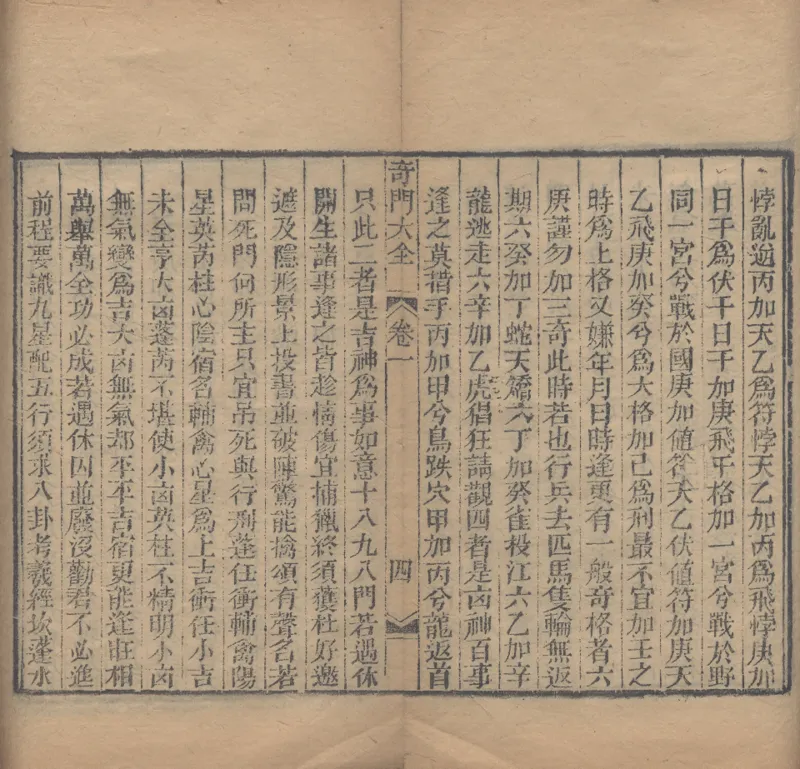 悖亂逆丙加天乙爲符悖天乙加丙爲飛悖庚加
日干爲伏干日干加庚飛干格加一宮兮戰於野
同一宮兮戰於國庚加値符天乙伏値符加庚天
乙飛庚加癸兮爲大格加己爲刑最不宜加壬之
時爲上格又嫌年月日時逢更有一般奇格者六
庚謹勿加三奇此時若也行兵去匹馬隻輪無返
期六癸加丁蛇夭矯六丁加癸雀投江六乙加辛
龍逃走六辛加乙虎猖狂請觀四者是凶神百事
逢之莫措手丙加甲兮鳥跌穴甲加丙兮龍返首
奇門大全 卷一 四
只此二者是吉神爲事如意十八九八門若遇休
開生諸事逢之皆趁情傷宜捕獵終須獲杜好邀
遮及隱形景上投書並破陣驚能擒頌有聲名若
問死門何所主只宜吊死與行刑蓬任衝輔禽陽
星英芮柱心陰宿名輔禽心星爲上吉衝任小吉
未全亨大凶蓬芮不堪使小凶英柱不精明小凶
無氣變爲吉大凶無氣却平平吉宿更能逢旺相
萬舉萬全功必成若遇休囚並廢沒勸君不必進
前程要識九星配五行須求八卦考羲經坎蓬水